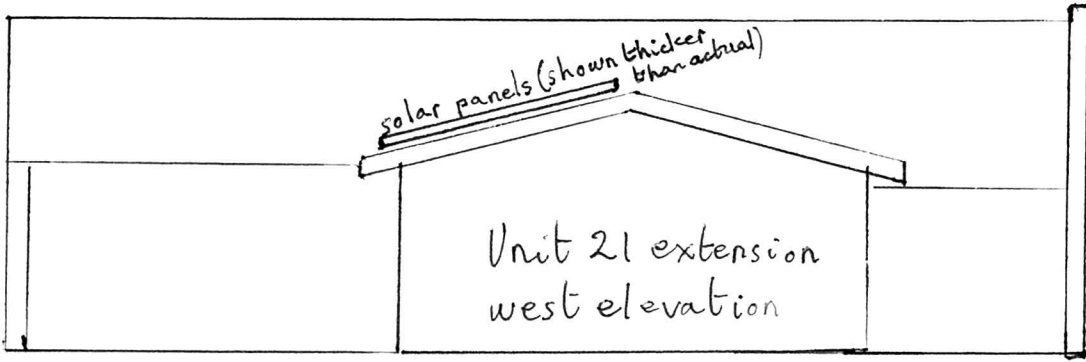 solar panels (shown thicker
than actual)
Unit 21 extension
west elevation